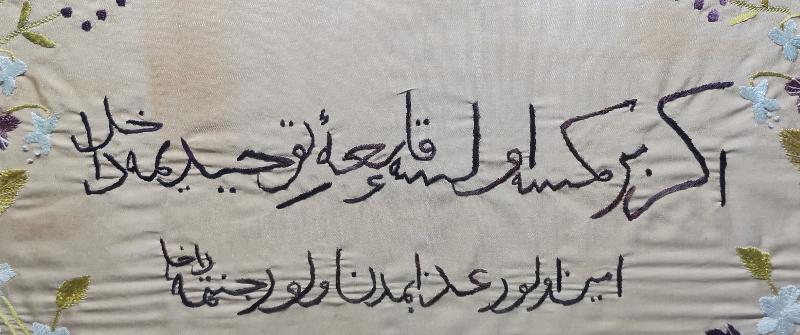 اكر بر كمسه اولسه قلعهٔ توحيديمه داخل
امين اولور عذابمدن اولور جنتمه داخل